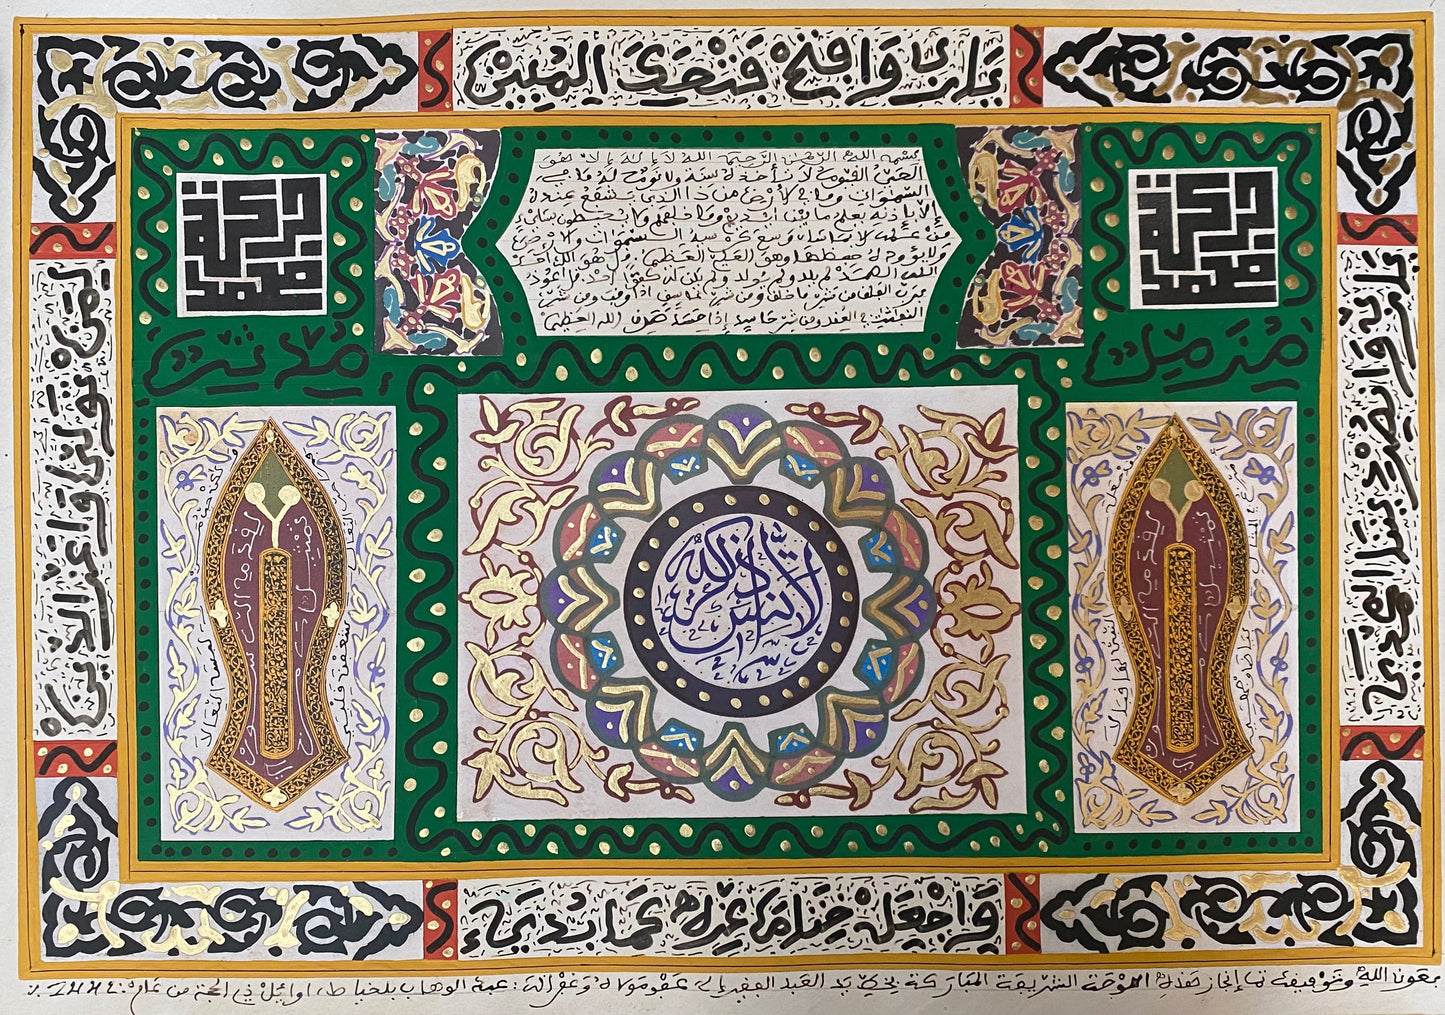 يا رب وافتح فتحك المبين
لمن تولى وأعز الدين
يا رب وانصر ديننا المحمدي
واجعل ختام عزه كما بدي
بركة محمد
بركة محمد
مزمل
مدثر
بسم الله الرحمن الرحيم الله لا إله إلا هو
الحي القيوم لا تأخذه سنة ولا نوم له ما في
السموات وما في الأرض من ذا الذي يشفع عنده
إلا بإذنه يعلم ما بين أيديهم وما خلفهم ولا يحيطون بشيء
من علمه إلا بما شاء وسع كرسيه السموات والأرض
ولا يؤوده حفظهما وهو العلي العظيم قل هو الله أحد
الله الصمد لم يلد ولم يولد ولم يكن له كفؤا أحد قل أعوذ
برب الفلق من شر ما خلق ومن شر غاسق إذا وقب ومن شر
النفاثات في العقد ومن شر حاسد إذا حسد صدق الله العظيم
لا تنس ذكر الله
بعون الله وتوفيقه تم إنجاز هذه اللوحة الشريفة المباركة على يد العبد الفقير إلى عفو مولاه وغفرانه: عبد الوهاب بلخياط، أوائل ذي الحجة من عام: 1442